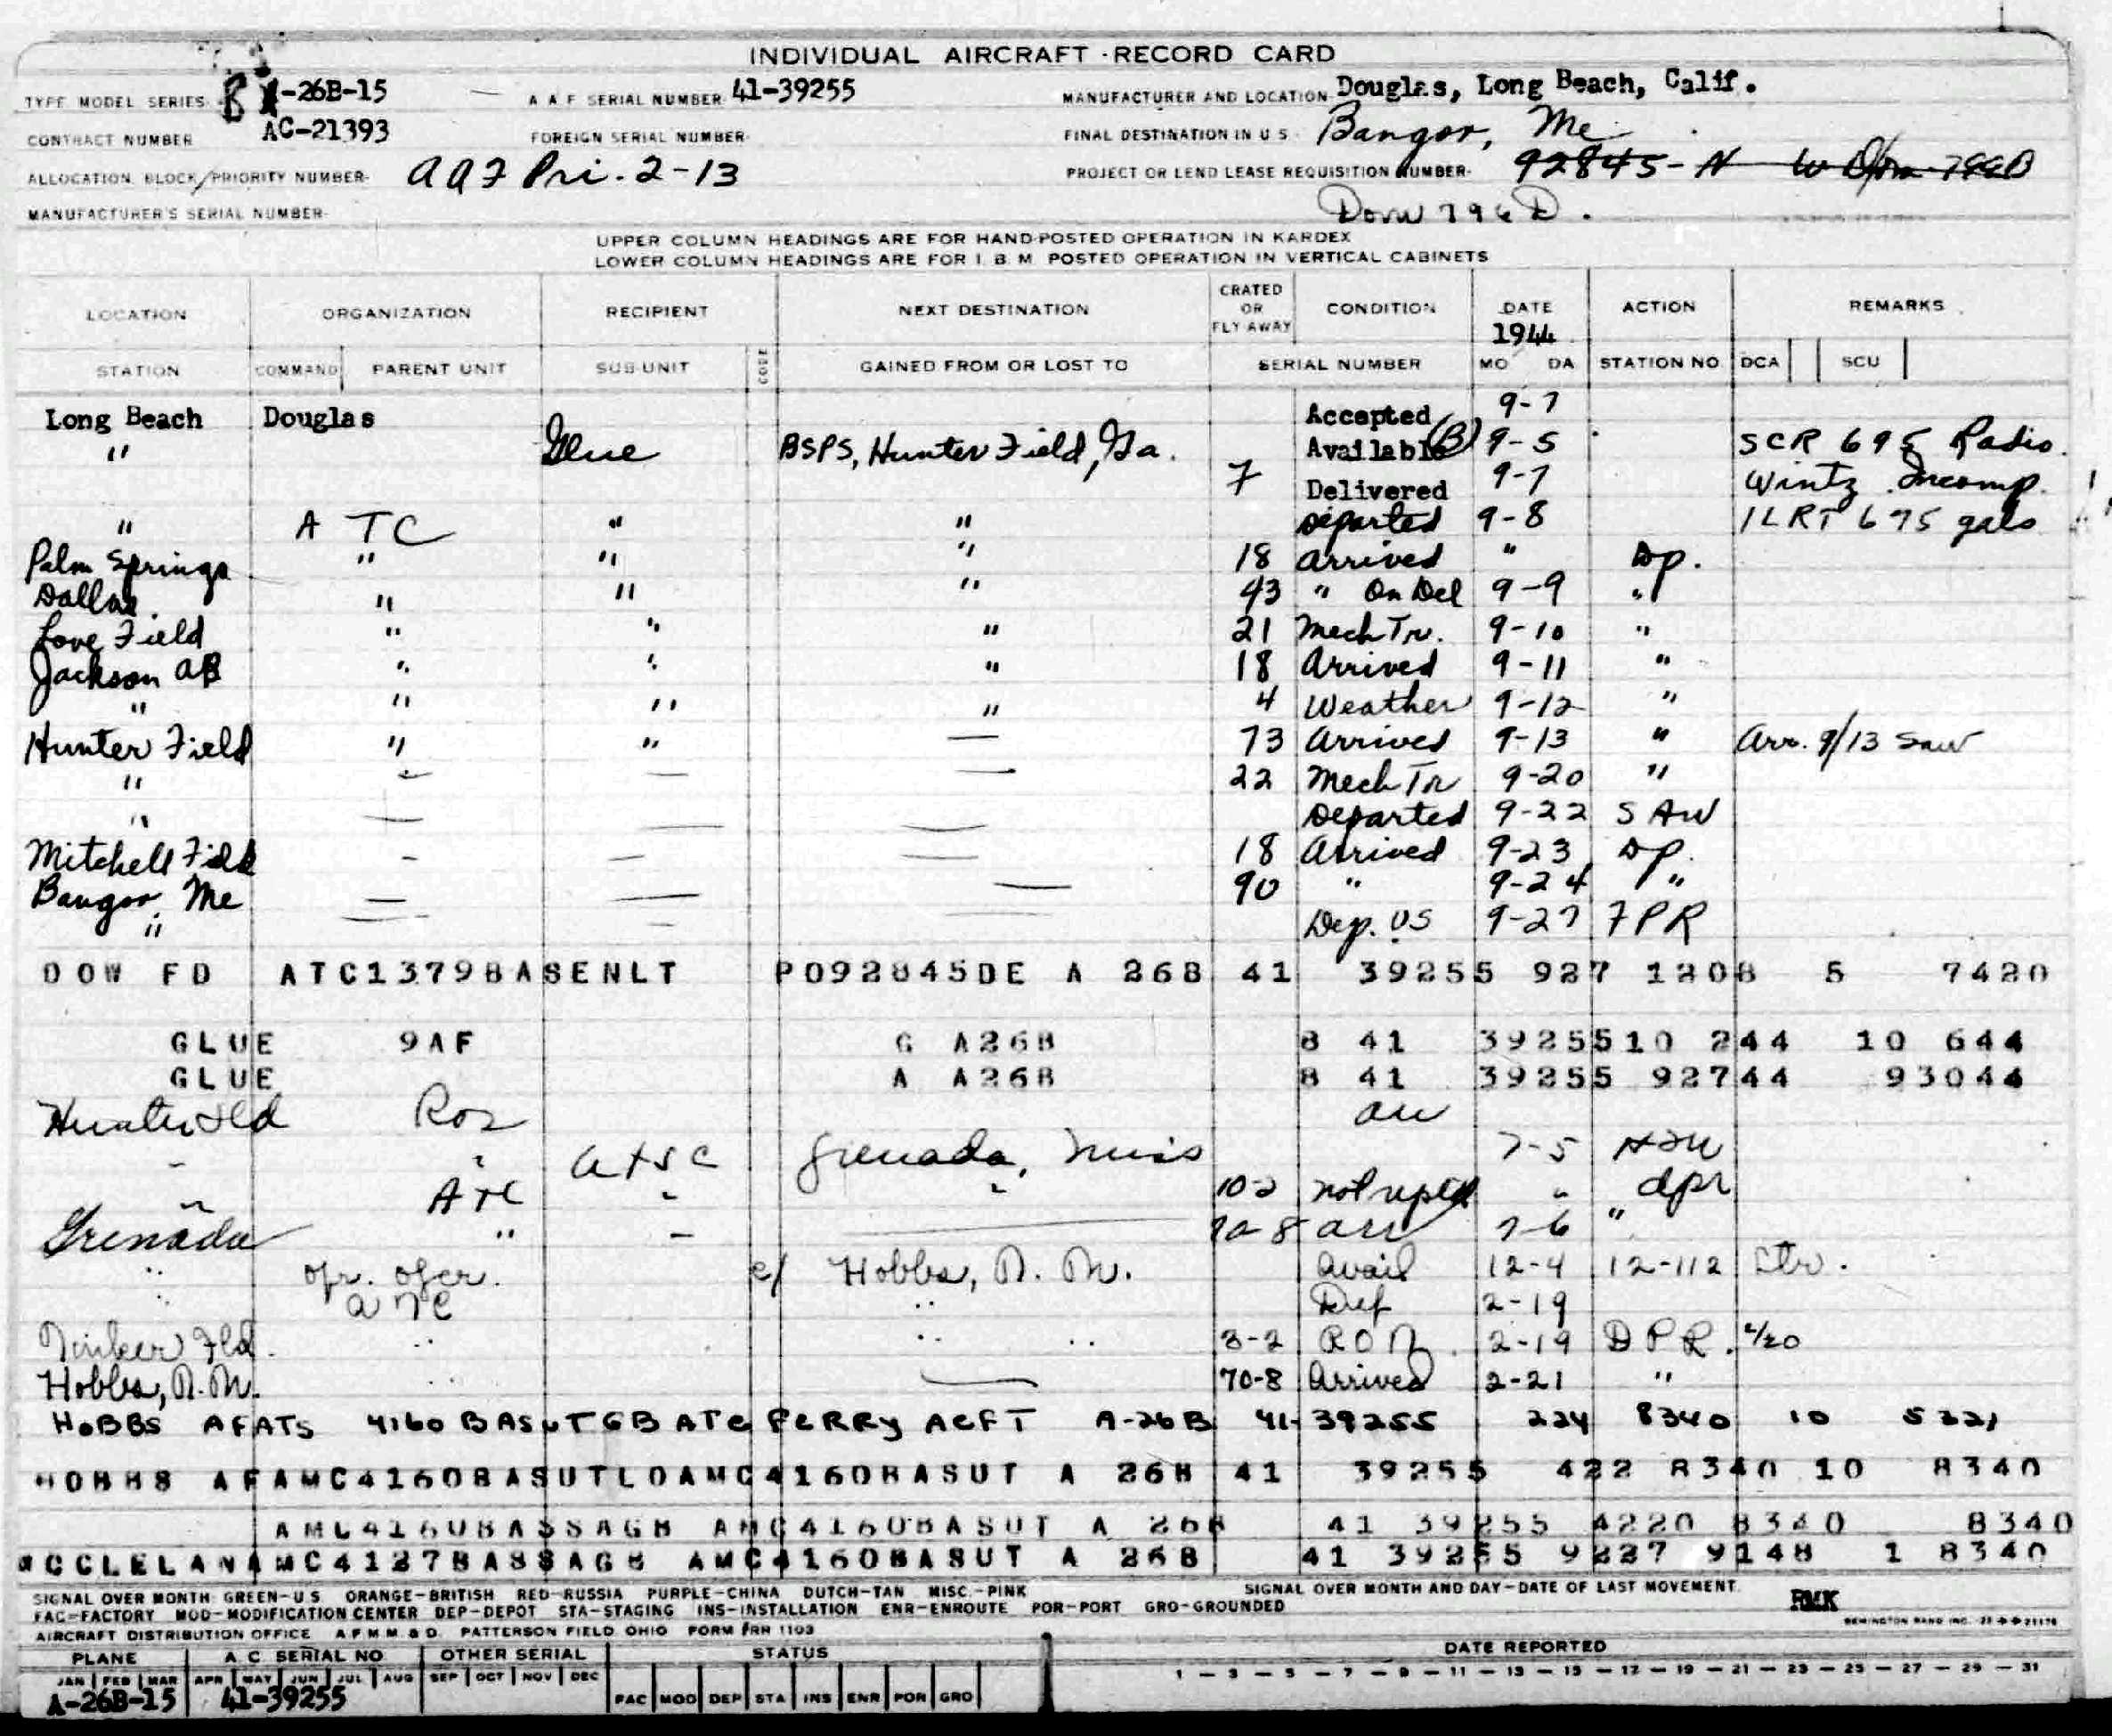 INDIVIDUAL AIRCRAFT - RECORD CARD
TYPE MODEL SERIES B -26B-15 — A A F SERIAL NUMBER 41-39255 MANUFACTURER AND LOCATION Douglas, Long Beach, Calif.
CONTRACT NUMBER AC-21393 FOREIGN SERIAL NUMBER FINAL DESTINATION IN U S Bangor, Me.
ALLOCATION BLOCK/PRIORITY NUMBER AAF Pri. 2-13 PROJECT OR LEND LEASE REQUISITION NUMBER 92845-N
MANUFACTURER'S SERIAL NUMBER Dow 796D.
UPPER COLUMN HEADINGS ARE FOR HAND-POSTED OPERATION IN KARDEX
LOWER COLUMN HEADINGS ARE FOR I. B M POSTED OPERATION IN VERTICAL CABINETS
LOCATION ORGANIZATION RECIPIENT NEXT DESTINATION CRATED OR FLY AWAY CONDITION DATE 1944 ACTION REMARKS
STATION COMMAND PARENT UNIT SUB-UNIT CODE GAINED FROM OR LOST TO SERIAL NUMBER MO DA STATION NO DCA SCU
Long Beach Douglas Accepted 9-7
" Glue BSPS, Hunter Field, Ga. Available (B) 9-5 SCR 695 Radio.
7 Delivered 9-7 Wintz. Incomp.
" A TC " " Departed 9-8 1LRT 675 gals
Palm Springs " " " 18 Arrived " Dp.
Dallas " " " 43 " On Del 9-9 "
Love Field " " " 21 Mech Tr. 9-10 "
Jackson AB " " " 18 Arrived 9-11 "
" " " " 4 Weather 9-12 "
Hunter Field " " — 73 Arrived 9-13 " Arr. 9/13 Saw
" — — — 22 Mech Tr 9-20 "
" — — — Departed 9-22 SAW
Mitchell Field - — — 18 Arrived 9-23 Dp.
Bangor, Me — — — 90 " 9-24 "
" — — — Dep. US 9-27 FPR
DOW FD ATC1379BASENLT P092845DE A 26B 41 39255 927 1208 5 7420
GLUE 9AF G A26B B 41 3925510 244 10 644
GLUE A A26B B 41 39255 92744 93044
Hunter Fld Roz arr
" " ATSC Grenada, Miss 7-5
" ATC " " 10-2 not repld " dpr
Grenada " — — 70-8 arr 7-6 "
" opr. ofcr. c/ Hobbs, N. M. Avail 12-4 12-112 Ltr.
" ATC " Def 2-19
Tinker Fld. " " " 3-2 RON 2-19 DPR. 2/20
Hobbs, N. M. " — 70-8 Arrived 2-21 "
HOBBS AFATS 4160 BASUTGB ATC FERRY ACFT A-26B 41-39255 224 8340 10 5221
HOBBS AFAMC4160BASUTLOAMC4160BASUT A 26B 41 39255 422 8340 10 8340
AMC4160BASSAGB AMC4160BASUT A 26B 41 39255 4220 8340 8340
MCCLELANAMC4127BASSAGB AMC4160BASUT A 26B 41 39255 9227 9148 1 8340
SIGNAL OVER MONTH GREEN-U.S. ORANGE-BRITISH RED-RUSSIA PURPLE-CHINA DUTCH-TAN MISC.-PINK SIGNAL OVER MONTH AND DAY-DATE OF LAST MOVEMENT
FAC-FACTORY MOD-MODIFICATION CENTER DEP-DEPOT STA-STAGING INS-INSTALLATION ENR-ENROUTE POR-PORT GRO-GROUNDED RMK
AIRCRAFT DISTRIBUTION OFFICE A.F.M.M. & D. PATTERSON FIELD OHIO FORM PRH 1103 REMINGTON RAND INC.
PLANE A C SERIAL NO OTHER SERIAL STATUS DATE REPORTED
JAN FEB MAR APR MAY JUN JUL AUG SEP OCT NOV DEC 1-3-5-7-9-11-13-15-17-19-21-23-25-27-29-31
A-26B-15 41-39255 FAC MOD DEP STA INS ENR POR GRO